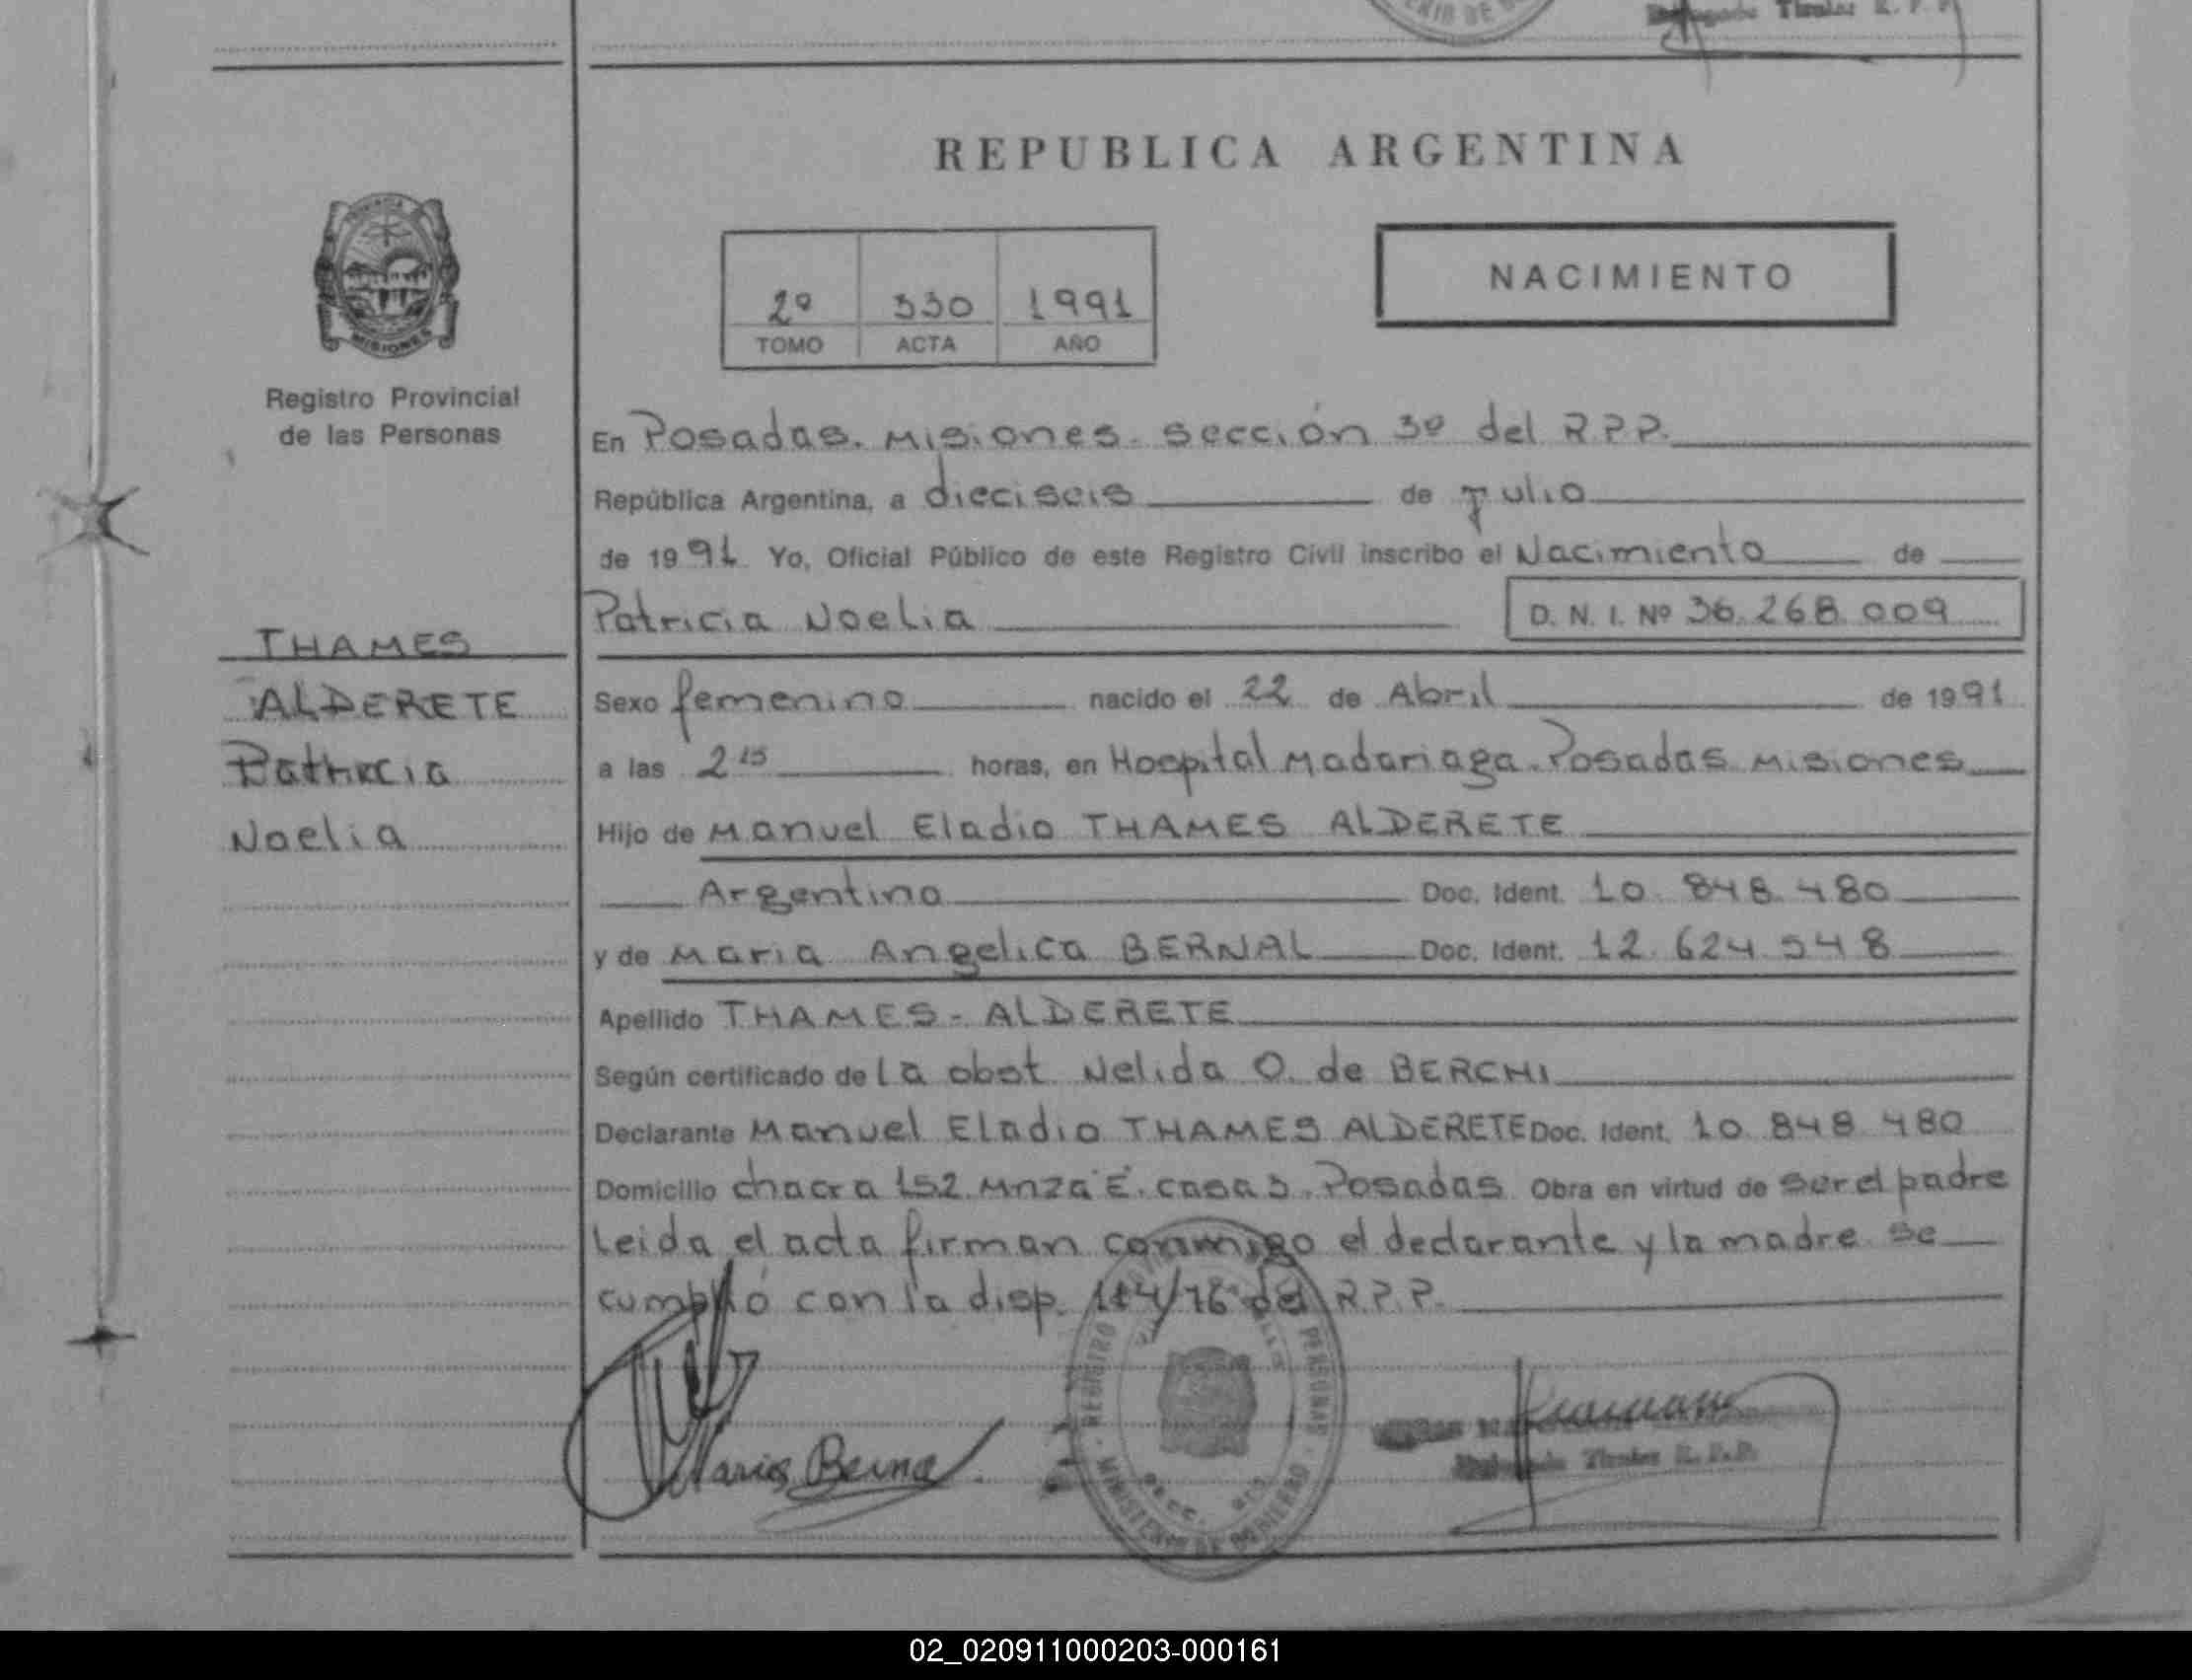 REPUBLICA ARGENTINA
PROVINCIA
MISIONES
Registro Provincial
de las Personas
2º 330 1991
TOMO ACTA AÑO
NACIMIENTO
THAMES
ALDERETE
Patricia
Noelia
En Posadas. Misiones. sección 3º del R.P.P.
República Argentina, a dieciseis de julio
de 1991 Yo, Oficial Público de este Registro Civil inscribo el Nacimiento de
Patricia Noelia D. N. I. Nº 36.268.009
Sexo femenino nacido el 22 de Abril de 1991
a las 2 15 horas, en Hospital Madariaga. Posadas Misiones
Hijo de Manuel Eladio THAMES ALDERETE
Argentino Doc. Ident. 10.848.480
y de Maria Angelica BERNAL Doc. Ident. 12.624.548
Apellido THAMES - ALDERETE
Según certificado de La obst Nelida O. de BERCHI
Declarante Manuel Eladio THAMES ALDERETE Doc. Ident. 10.848.480
Domicilio chacra 152. Mnza "E". casa 3. Posadas Obra en virtud de ser el padre
Leida el acta firman conmigo el declarante y la madre se
cumplió con la disp. 114/76 del R.P.P.
REGISTRO PERSONAS
MINISTERIO DE GOBIERNO
Titular R.P.P.
02_020911000203-000161